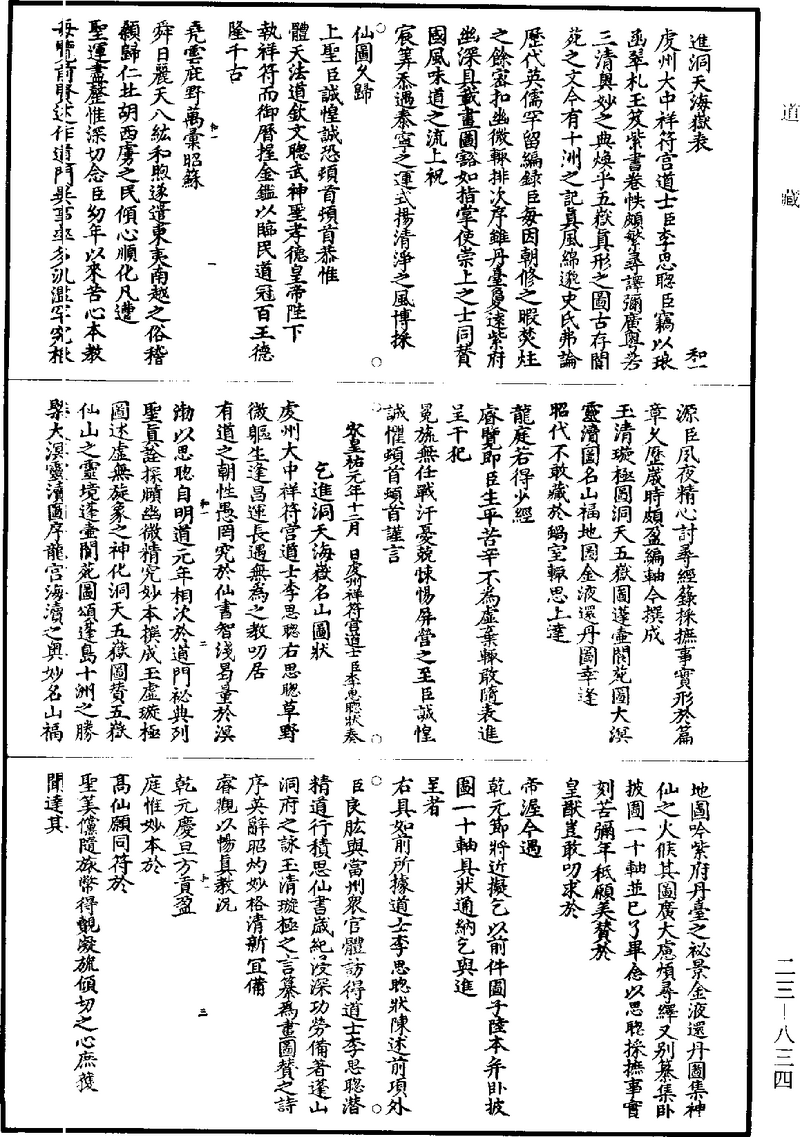 道藏
進洞天海嶽表
和一
虔州大中祥符宮道士臣李思聰臣竊以琅
函翠札玉笈紫書卷帙頗繁尋譯彌廣粵若
三清奧妙之典煥乎五嶽真形之圖古存閬
苑之文今有十洲之記真風綿邈史氏弗論
歷代英儒罕留編錄臣每因朝修之暇焚炷
之餘密扣幽微輒排次序雖丹臺夐遠紫府
幽深具載畫圖豁如指掌使崇上之士同贊
國風味道之流上祝
宸筭忝遇泰寧之運式揚清淨之風博採
仙圖久歸
上聖臣誠惶誠恐頓首頓首恭惟
體天法道欽文聰武神聖孝德皇帝陛下
執祥符而御曆捏金鑑以臨民道冠百王德
隆千古
堯雲庇野萬彙昭蘇
和一
一
舜日麗天八紘和煦遂遣東夷南越之俗稽
顙歸仁北胡西虜之民傾心順化凡遭
聖運盡釐惟深切念臣幼年以來苦心本教
每覽前賢述作道門異事率多訛濫罕究根
源臣夙夜精心討尋經籙採摭事實形於篇
章久歷歲時頗盈編軸今撰成
玉清璇極圖洞天五嶽圖蓬壺閬苑圖大溟
靈瀆圖名山福地圖金液還丹圖幸逢
昭代不敢藏於蝸室輒思上達
龍庭若得少經
睿覽即臣生平苦辛不為虛棄輒敢隨表進
呈干犯
冕旒無任戰汗憂兢悚惕屏營之至臣誠惶
誠懼頓首頓首謹言
宋皇祐元年十二月 日虔州祥符宮道士臣李思聰狀奏
乞進洞天海嶽名山圖狀
虔州大中祥符宮道士李思聰右思聰草野
微軀生逢昌運長遇無為之教叨居
有道之朝性愚罔究於仙書智淺曷量於溟
和一
二
渤以思聰自明道元年相次於道門祕典列
聖真詮探賾幽微精究妙本撰成玉虛璇極
圖述虛無旋象之神化洞天五嶽圖贊五嶽
仙山之靈境蓬壺閬苑圖頌蓬島十洲之勝
槩大溟靈瀆圖序龍宮海瀆之奧妙名山福
地圖吟紫府丹臺之祕景金液還丹圖集神
仙之火候其圖廣大慮煩尋繹又別纂集卧
披圖一十軸並已了畢念以思聰採摭事實
刻苦彌年秪願美贊於
皇猷豈敢叨求於
帝渥今遇
乾元節將近擬乞以前件圖子陸本弁卧披
圖一十軸具狀通納乞與進
呈者
右具如前所據道士李思聰狀陳述前項外
臣良肱與當州眾官體訪得道士李思聰潛
精道行積思仙書歲紀浸深功勞備著蓬山
洞府之詠玉清璇極之言纂為畫圖贊之詩
序英辭昭灼妙格清新冝備
睿觀以暢真教況
和一
三
乾元慶旦方貢盈
庭惟妙本於
高仙願同符於
聖筭儻隨旅幣得覿凝旒傾切之心庶獲
聞達其
二三—八三四